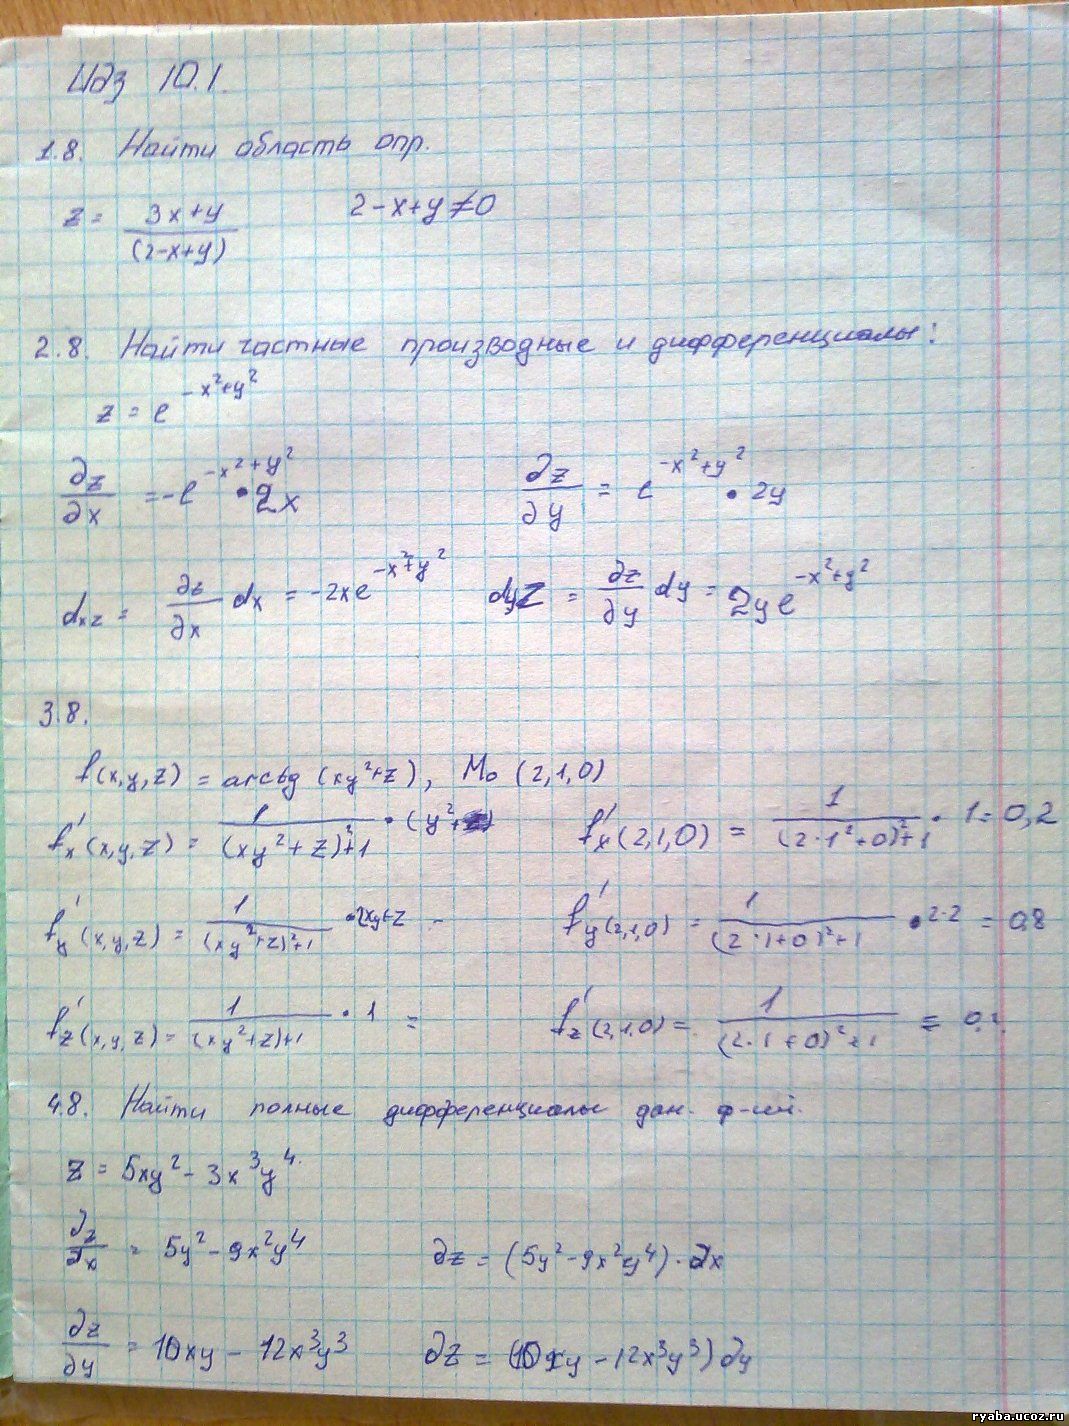 Идз 10.1.
1.8. Найти область опр.
z = (3x+y)/(2-x+y)    2-x+y≠0
2.8. Найти частные производные и дифференциалы:
z = e^(-x²+y²)
∂z/∂x = -e^(-x²+y²) • 2x    ∂z/∂y = e^(-x²+y²) • 2y
dxz = ∂z/∂x dx = -2xe^(-x²+y²)    dyz = ∂z/∂y dy = 2ye^(-x²+y²)
3.8.
f(x,y,z) = arctg (xy²+z), M₀ (2,1,0)
f'x(x,y,z) = 1/((xy²+z)²+1) • (y²+    f'x(2,1,0) = 1/((2·1²+0)²+1) • 1 = 0,2
f'y(x,y,z) = 1/((xy²+z)²+1) • 2xy+z -    f'y(2,1,0) = 1/((2·1+0)²+1) • 2·2 = 0,8
f'z(x,y,z) = 1/((xy²+z)+1) • 1 =    f'z(2,1,0) = 1/((2·1+0)²+1) = 0,2
4.8. Найти полные дифференциалы дан. ф-ий.
z = 5xy² - 3x³y⁴.
∂z/∂x = 5y² - 9x²y⁴    ∂z = (5y² - 9x²y⁴)·∂x
∂z/∂y = 10xy - 12x³y³    ∂z = (10xy - 12x³y³) ∂y
ryaba.ucoz.ru